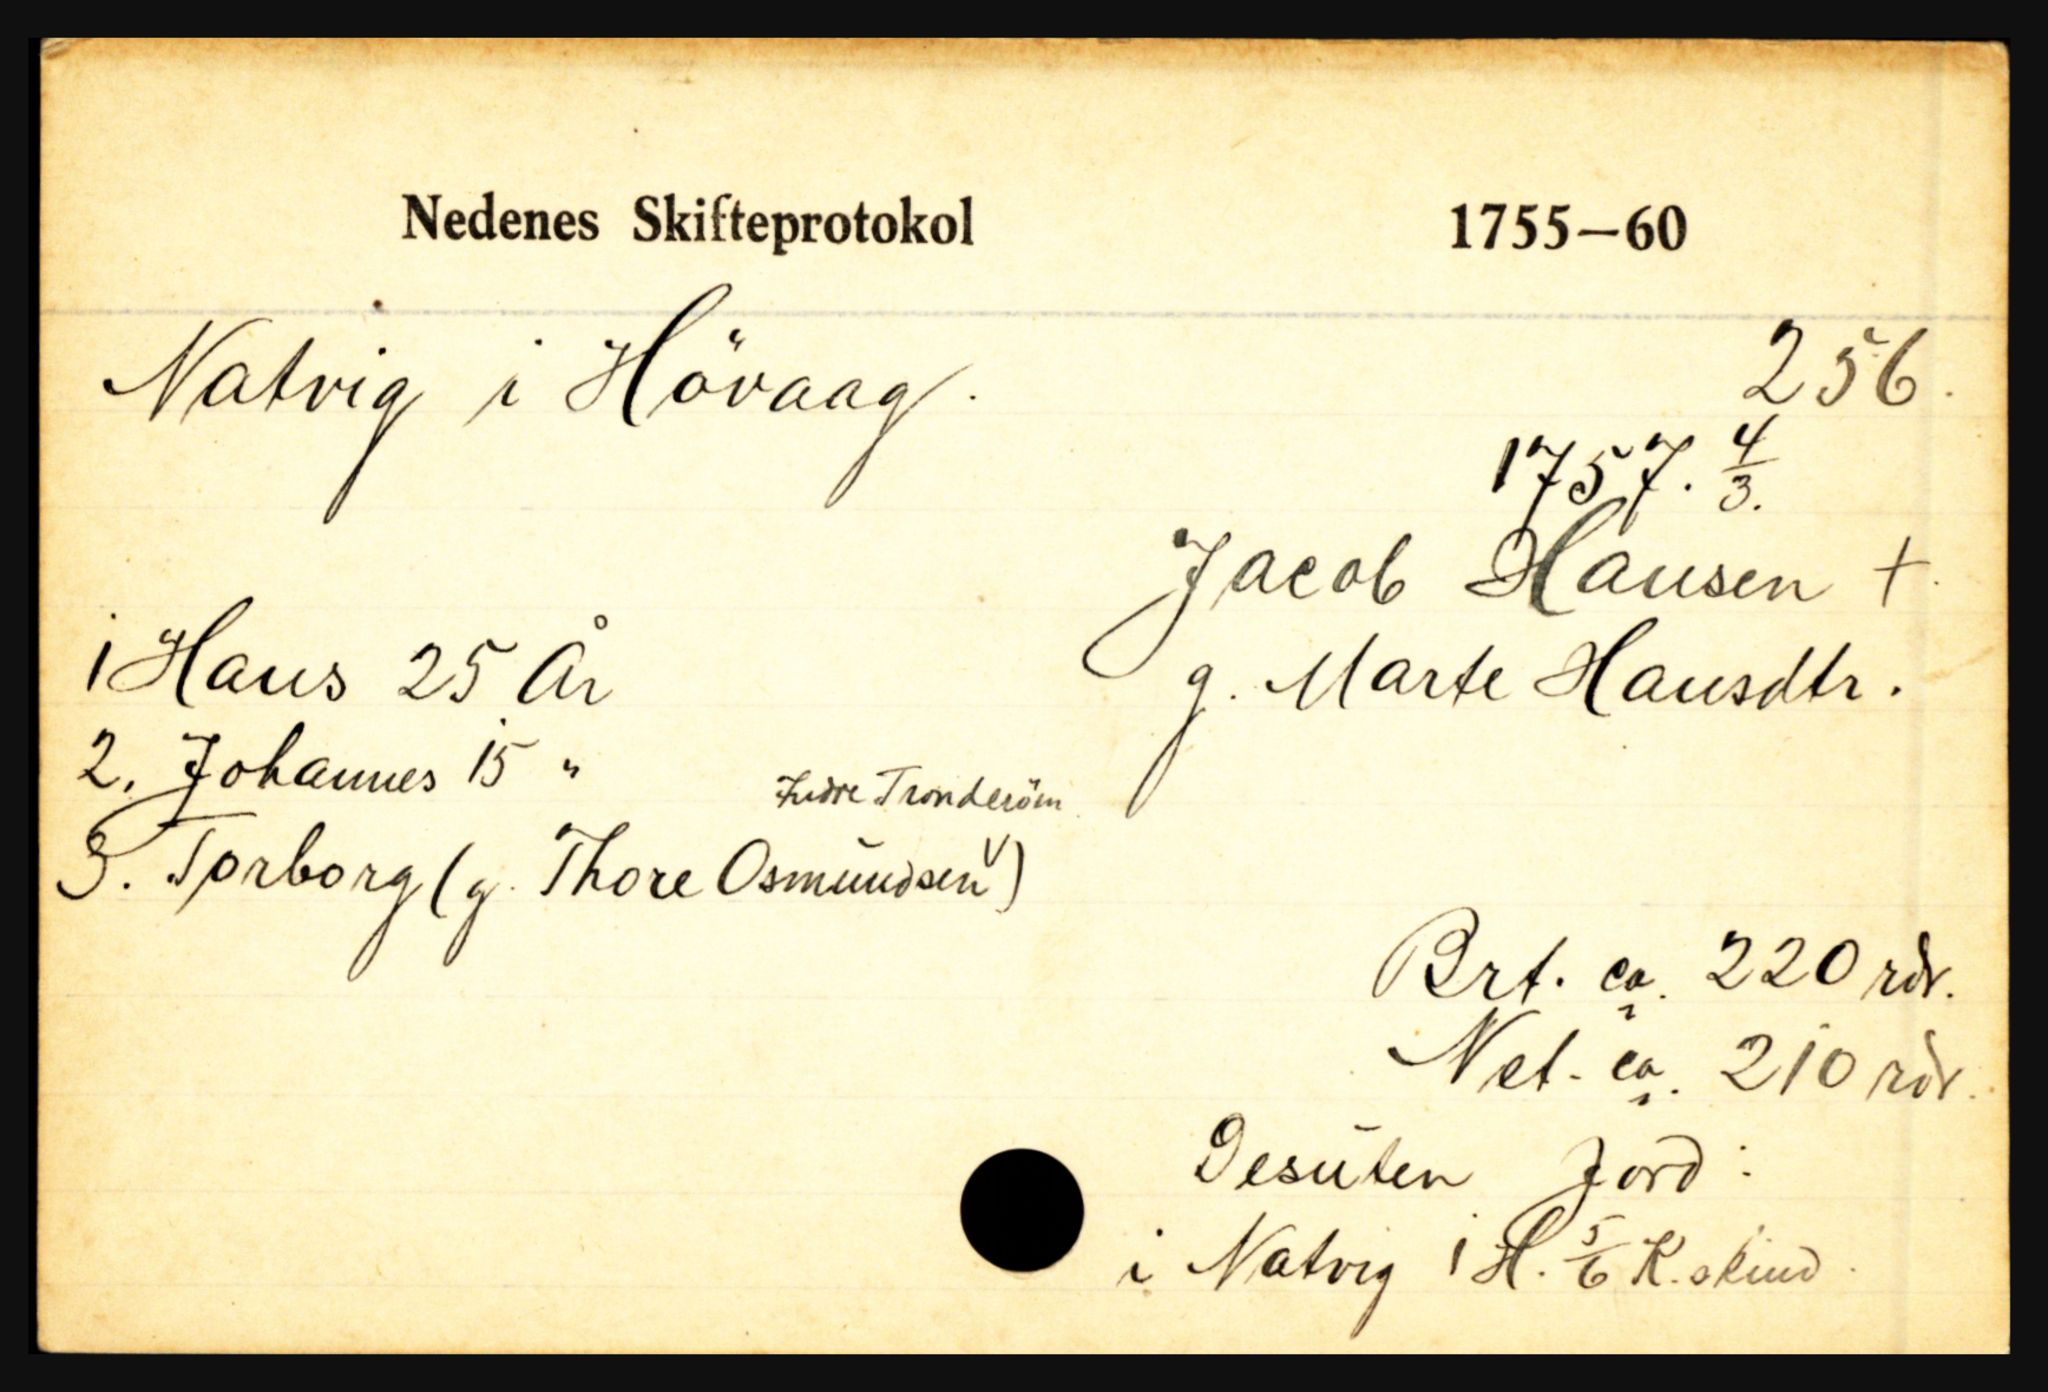 Nedenes Skifteprotokol 1755—60
Natvig i Hövaag. 256.
1757. 4/3.
Jacob Hansen +.
g. Marte Hansdtr.
1 Hans 25 År
2. Johannes 15 "
Indre Tronderöm
3. Torborg (g. Thore Osmundsen v)
Brt. ca. 220 rdr.
Net. ca. 210 rdr.
Desuten Jord:
i Natvig 1 H. 5/6 K.skind.